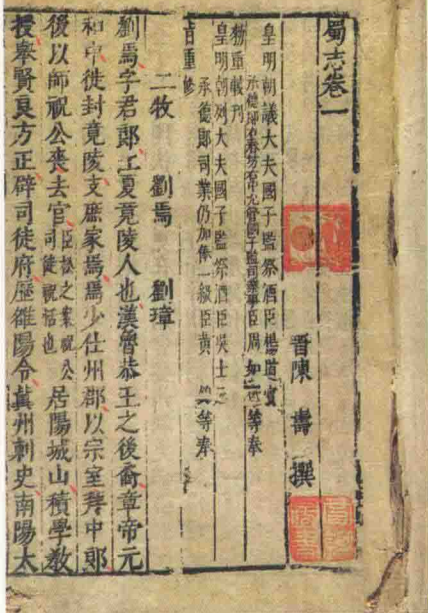 蜀志卷一
晋陳壽撰
皇明朝議大夫國子監祭酒臣楊道賓
承德郎右春坊右中允管國子監司業事臣周如砥等奉
勑重較刊
皇明朝列大夫國子監祭酒臣吳士元
承德郎司業仍加俸一級臣黄錦等奉
旨重修
二牧 劉焉 劉璋
劉焉字君郎江夏竟陵人也漢魯恭王之後裔章帝元
和中徙封竟陵支庶家焉焉少仕州郡以宗室拜中郎
後以師祝公喪去官臣松之案祝公司徒祝恬也居陽城山積學教
授舉賢良方正辟司徒府歷雒陽令冀州刺史南陽太